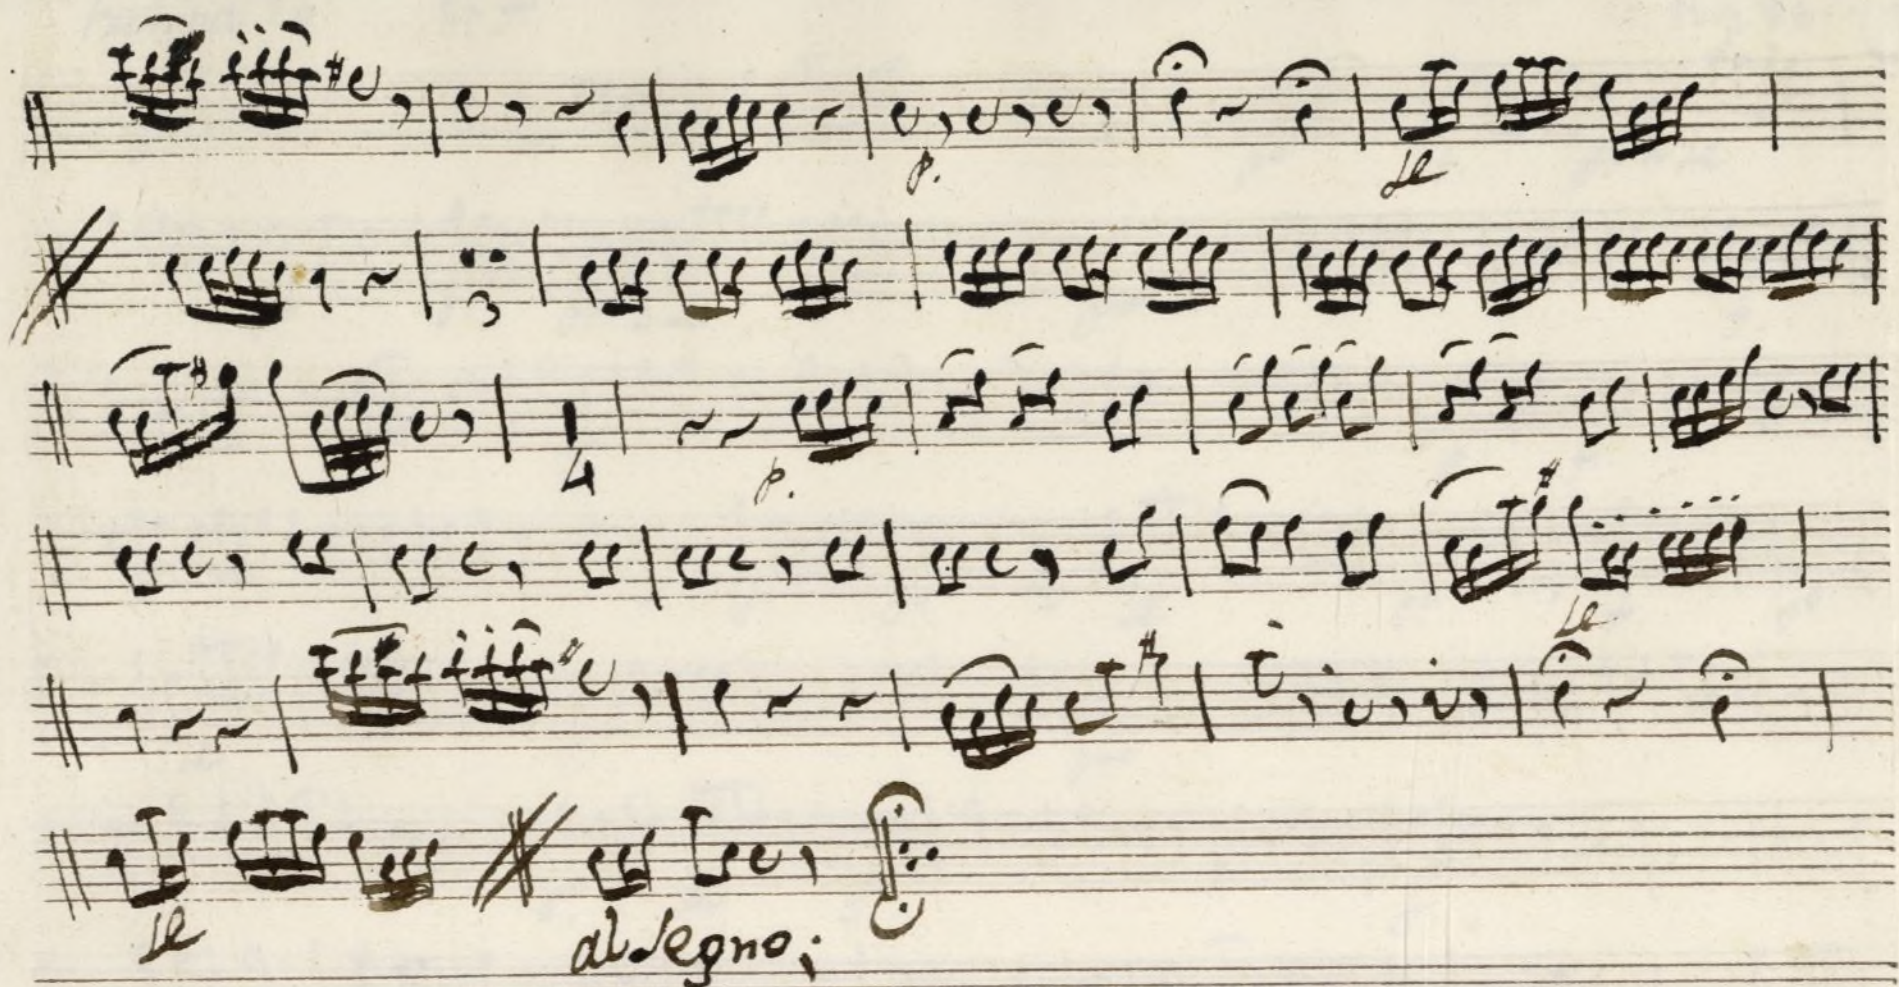 p.
3
4
p.
al Segno;